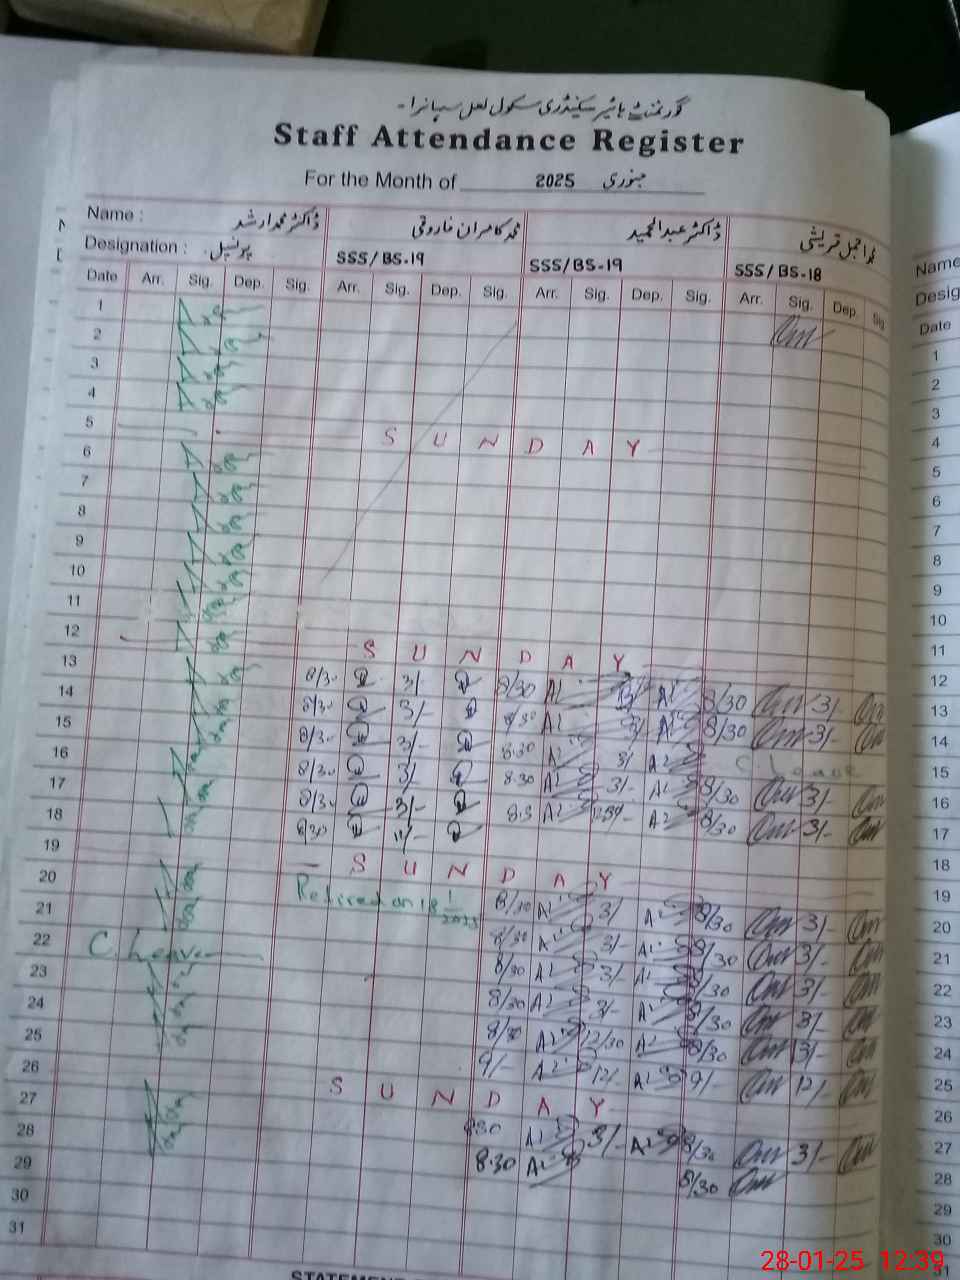 گورنمنٹ ہائیر سیکنڈری سکول لعل سہانرا -
Staff Attendance Register
For the Month of 2025 جنوری
Name : ڈاکٹر محمد ارشد محمد کامران فاروقی ڈاکٹر عبدالحمید محمد اجمل قریشی Name
Designation : پرنسپل SSS/BS-19 SSS/BS-19 SSS/BS-18 Desig
Date Arr. Sig. Dep. Sig. Arr. Sig. Dep. Sig. Arr. Sig. Dep. Sig. Arr. Sig. Dep. Sig Date
1 1
2 2
3 3
4 4
5 SUNDAY 5
6 6
7 7
8 8
9 9
10 10
11 11
12 SUNDAY 12
13 8/30 3/- 8/30 3/- 8/30 3/- 13
14 8/30 3/- 8/30 3/ 8/30 3/- 14
15 8/30 3/- 8.30 3/ C Leave 15
16 8/30 3/ 8.30 3/- 8/30 3/- 16
17 8/30 3/- 8.3 8/30 3/- 17
18 8/30 11/- 18
19 SUNDAY 19
20 Retired on 18 1/2025 8/30 3/ 8/30 3/- 20
21 8/30 3/- 8/30 3/- 21
22 C. Leave 8/30 3/- 8/30 3/- 22
23 8/30 3/- 8/30 3/- 23
24 8/30 12/30 8/30 3/- 24
25 9/- 12/- 9/- 12/- 25
26 SUNDAY 26
27 8.30 3/- 8/30 3/- 27
28 8.30 8/30 28
29 29
30 30
31 31
28-01-25 12:39